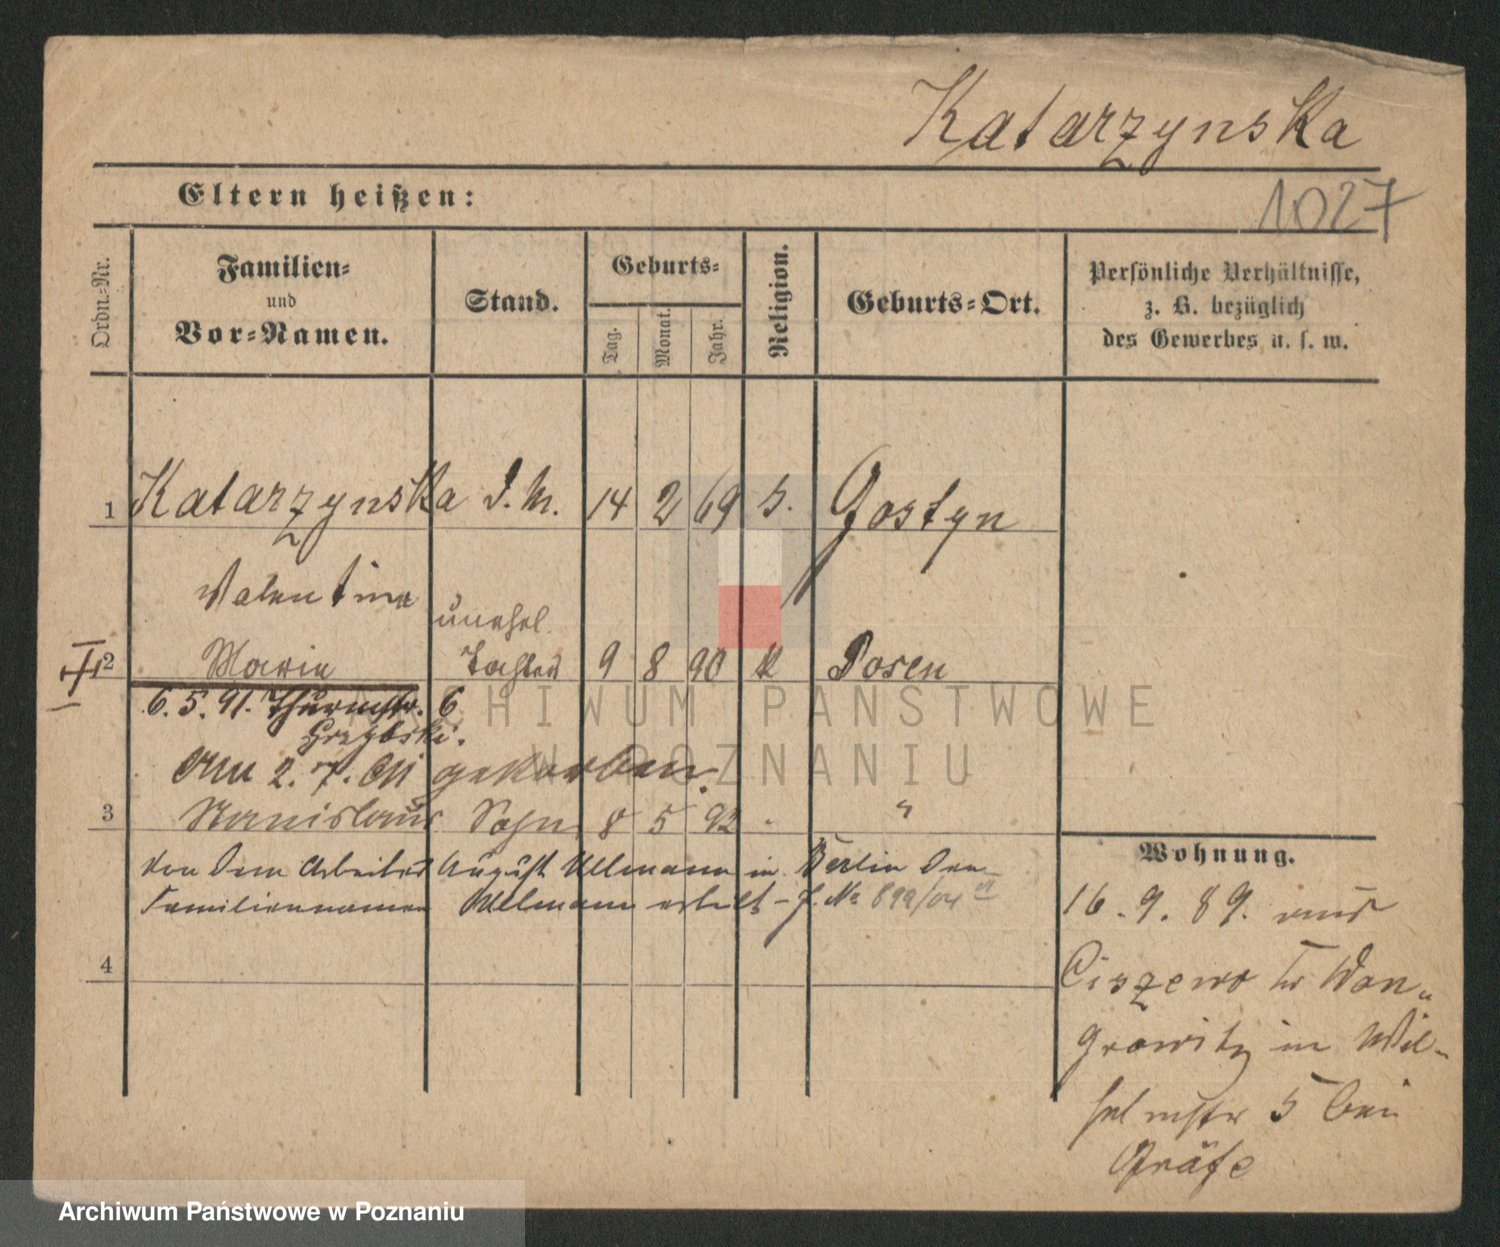 Katarzynska
Eltern heißen:
1027
Ordn.-Nr.
Familien-
und
Vor-Namen.
Stand.
Geburts-
Tag.
Monat.
Jahr.
Religion.
Geburts-Ort.
Persönliche Verhältnisse,
z. B. bezüglich
des Gewerbes u. s. w.
1 Katarzynska 14 2 69 Gostyn
Valentina
unehel.
2 Maria Tochter 9 8 90 k Posen
6. 5. 91. Thurmstr. 6
Grzybski.
Am 2. 7. 91 gestorben.
3 Stanislaus Sohn 8 5 92 "
Von dem Arbeiter August Ullmann in Berlin den
Familiennamen Ullmann erteilt - J. No 899/04
4
Wohnung.
16. 9. 89. aus
Ciszewo Kr Won-
growitz in Wil-
helmstr 5 bei
Gräfe
ARCHIWUM PAŃSTWOWE
W POZNANIU
Archiwum Państwowe w Poznaniu